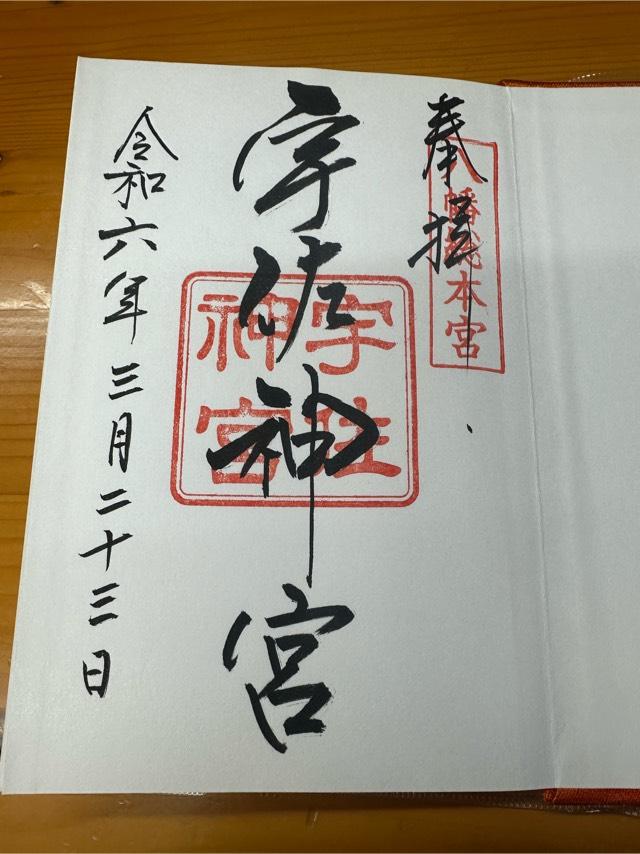 奉拝
八幡總本宮
宇佐神宮
宇佐
神宮
令和六年三月二十三日